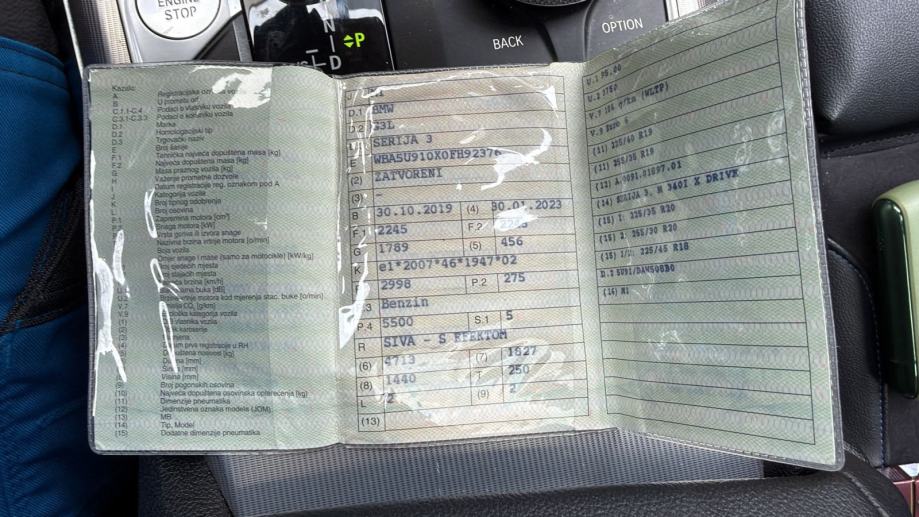 ENGINE
STOP
N
D
P
BACK
OPTION
Kazalo:
A Registracijska
B U prometu od
C.1.1-C.4 Podaci o vlasniku vozila
C.3.1-C.3.3 Podaci o korisniku vozila
D.1 Marka
D.2 Homologacijski tip
D.3 Trgovački naziv
E Broj šasije
F.1 Tehnička najveća dopuštena masa [kg]
F.2 Najveća dopuštena masa [kg]
G Masa praznog vozila [kg]
H Važenje prometne dozvole
I Datum registracije reg. oznakom pod A
J Kategorija vozila
K Broj tipnog odobrenja
L Broj osovina
P.1 Zapremina motora [cm³]
Snaga motora [kW]
Vrsta goriva ili izvora snage
Nazivna brzina vrtnje motora [o/min]
Boja vozila
Omjer snage i mase (samo za motocikle) [kW/kg]
sjedećih mjesta
stajaćih mjesta
brzina [km/h]
buka [dB]
vrtnje kod mjerenja stac. buke [o/min]
V.7 CO₂ [g/km]
V.9 kategorija vozila
(1) vlasnika vozila
(2) karoserije
(3)
(4) prve registracije u RH
(5) nosivost [kg]
(6) [mm]
[mm]
Visina [mm]
(9) Broj pogonskih osovina
(10) Najveća dopuštena osovinska opterećenja [kg]
(11) Dimenzije pneumatika
(12) Jedinstvena oznaka modela (JOM)
(13) MB
(14) Tip, Model
(15) Dodatne dimenzije pneumatika
J M1
D.1 BMW
D.2 G3L
SERIJA 3
E WBA5U910X0FH92376
(2) ZATVORENI
(3) -
B 30.10.2019 (4) 30.01.2023
F.1 2245 F.2
G 1789 (5) 456
K e1*2007*46*1947*02
2998 P.2 275
Benzin
P.4 5500 S.1 5
R SIVA - S EFEKTOM
(6) 4713 (7) 1827
(8) 1440 T 250
L 2 (9) 2
(13)
U.2 3750
V.7 g/km (WLTP)
V.9 Euro 6
(11) 225/40 R19
(11) 255/35 R19
(14) SERIJA 3, M 340I X DRIVE
(15) 1: 225/35 R20
(15) 2: 255/30 R20
(15) 225/45 R18
(16) M1